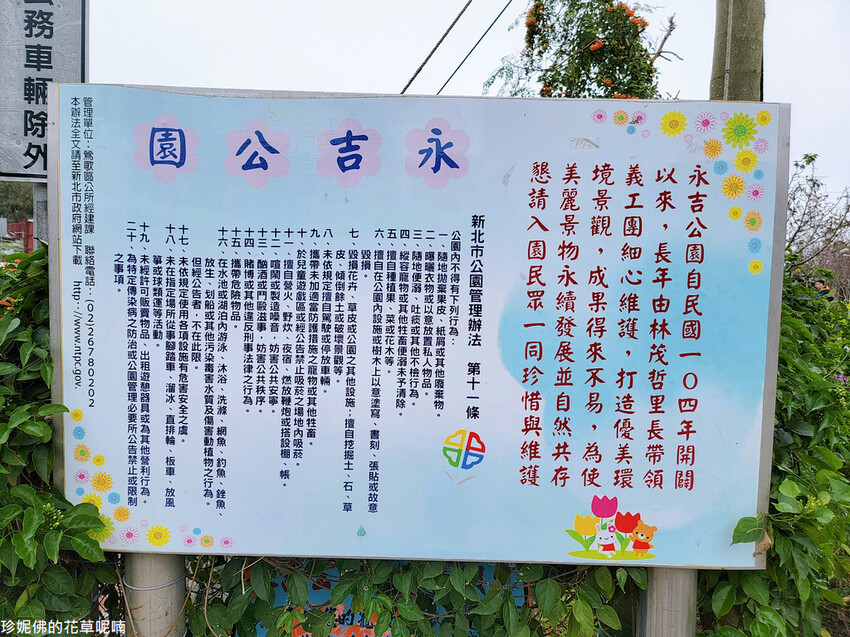 公務車輛除外
永吉公園
永吉公園自民國一０四年開闢
以來，長年由林茂哲里長帶領
義工團細心維護，打造優美環
境景觀，成果得來不易，為使
美麗景物永續發展並自然共存
懇請入園民眾一同珍惜與維護
新北市公園管理辦法　第十一條
公園內不得有下列行為：
一、隨地拋棄果皮、紙屑或其他廢棄物。
二、曝曬衣物或以意放置私人物品。
三、隨地便溺、吐痰或其他不檢行為。
四、縱容寵物或其他牲畜便溺未予清除。
五、擅自種植果、菜或花木等。
六、擅自在公園內設施或樹木上以意塗寫、書刻、張貼或故意
毀損。
七、毀損花卉、草皮或公園之其他設施；擅自挖掘土、石、草
皮、傾倒餘土或破壞景觀等。
八、未依規定擅自駕駛或停放車輛。
九、攜帶未加適當防護措施之寵物或其他牲畜。
十、於兒童遊戲區或經公告禁止吸菸之場地內吸菸。
十一、擅自營火、野炊、夜宿、燃放鞭炮或搭設棚、帳。
十二、喧鬧或製造噪音，妨害公共安寧。
十三、酗酒或鬥毆滋事，妨害公共秩序。
十四、賭博或其他違反刑事法律之行為。
十五、攜帶危險物品。
十六、在水池或湖泊內游泳、沐浴、洗滌、網魚、釣魚、銼魚、
放生、划船或其他污染毒害水質及傷害動植物之行為。
但經公告者，不在此限。
十七、未依規定使用各項設施有危害安全之虞。
十八、未在指定場所從事腳踏車、溜冰、直排輪、板車、放風
箏或球類運等活動。
十九、未經許可販賣物品、出租遊憩器具或為其他營利行為。
二十、為特定傳染病之防治或公園管理必要所公告禁止或限制
之事項。
管理單位：鶯歌區公所經建課　聯絡電話：(02)26780202
本辦法全文請至新北市政府網站下載　http://www.ntpc.gov
珍妮佛的花草呢喃